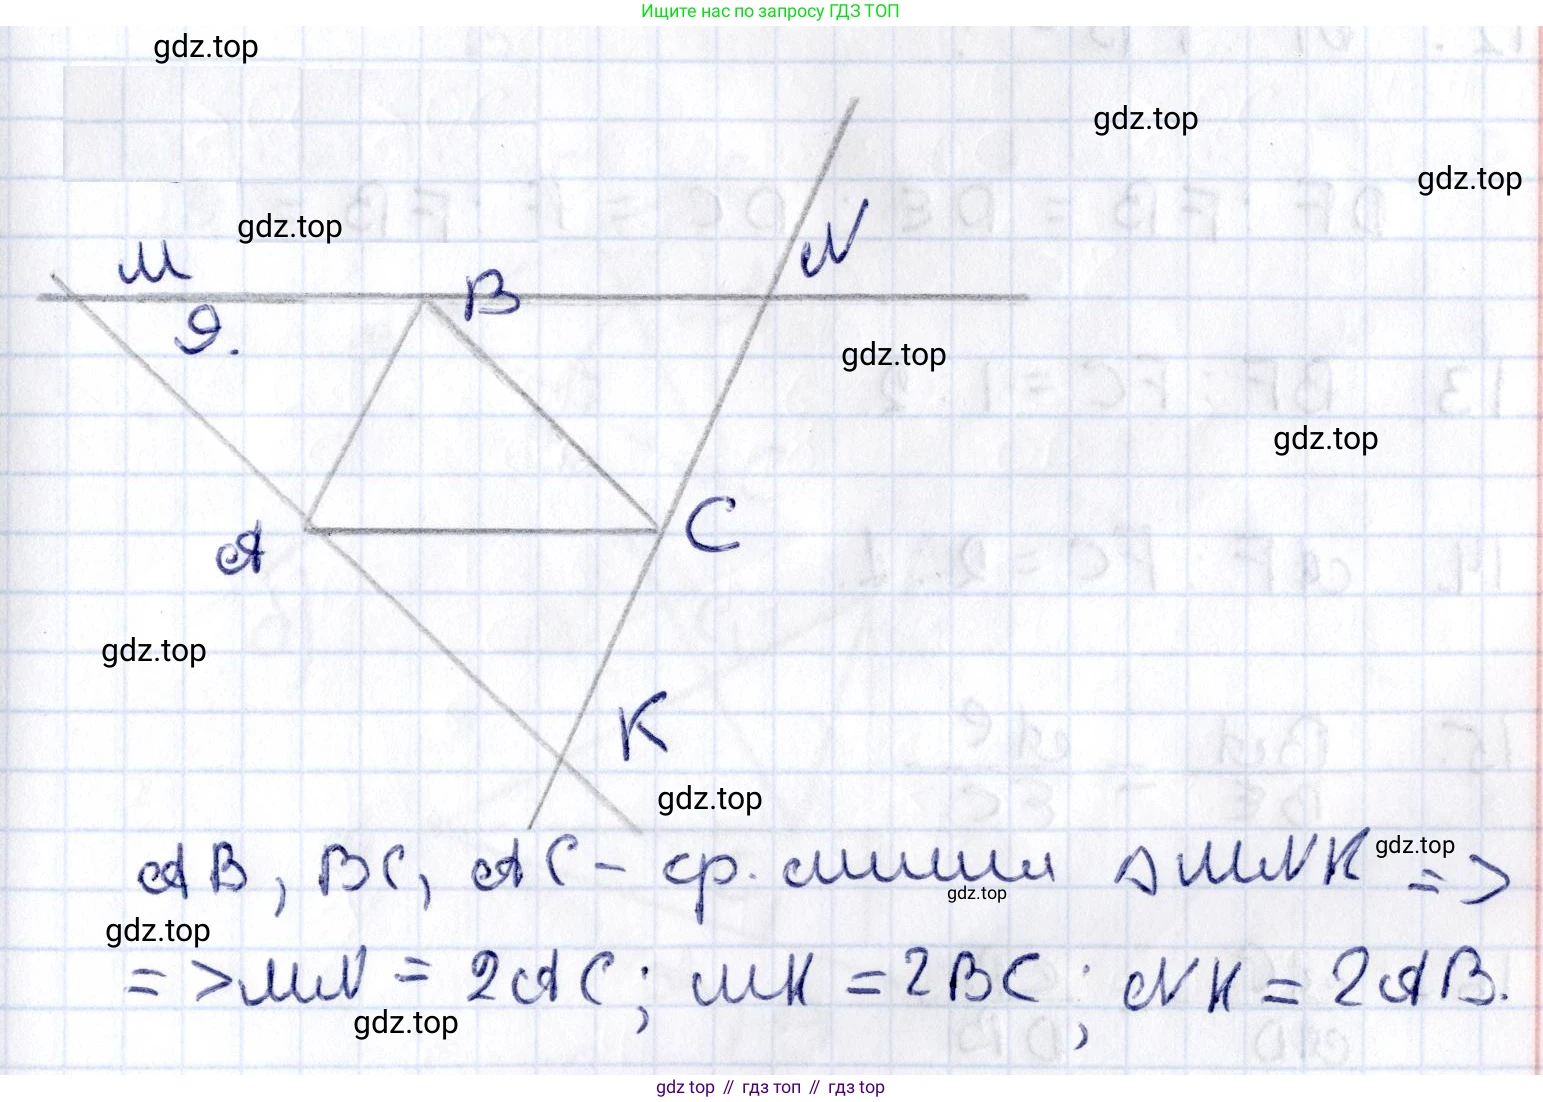 Ищите нас по запросу ГДЗ ТОП
gdz.top
gdz.top
gdz.top
gdz.top
M
B
N
9.
gdz.top
gdz.top
A
C
gdz.top
K
gdz.top
AB, BC, AC - ср. линии ΔMNK =>
gdz.top
gdz.top
gdz.top
=> MN = 2AC; MK = 2BC; NK = 2AB.
gdz.top
gdz top // гдз топ // gdz top